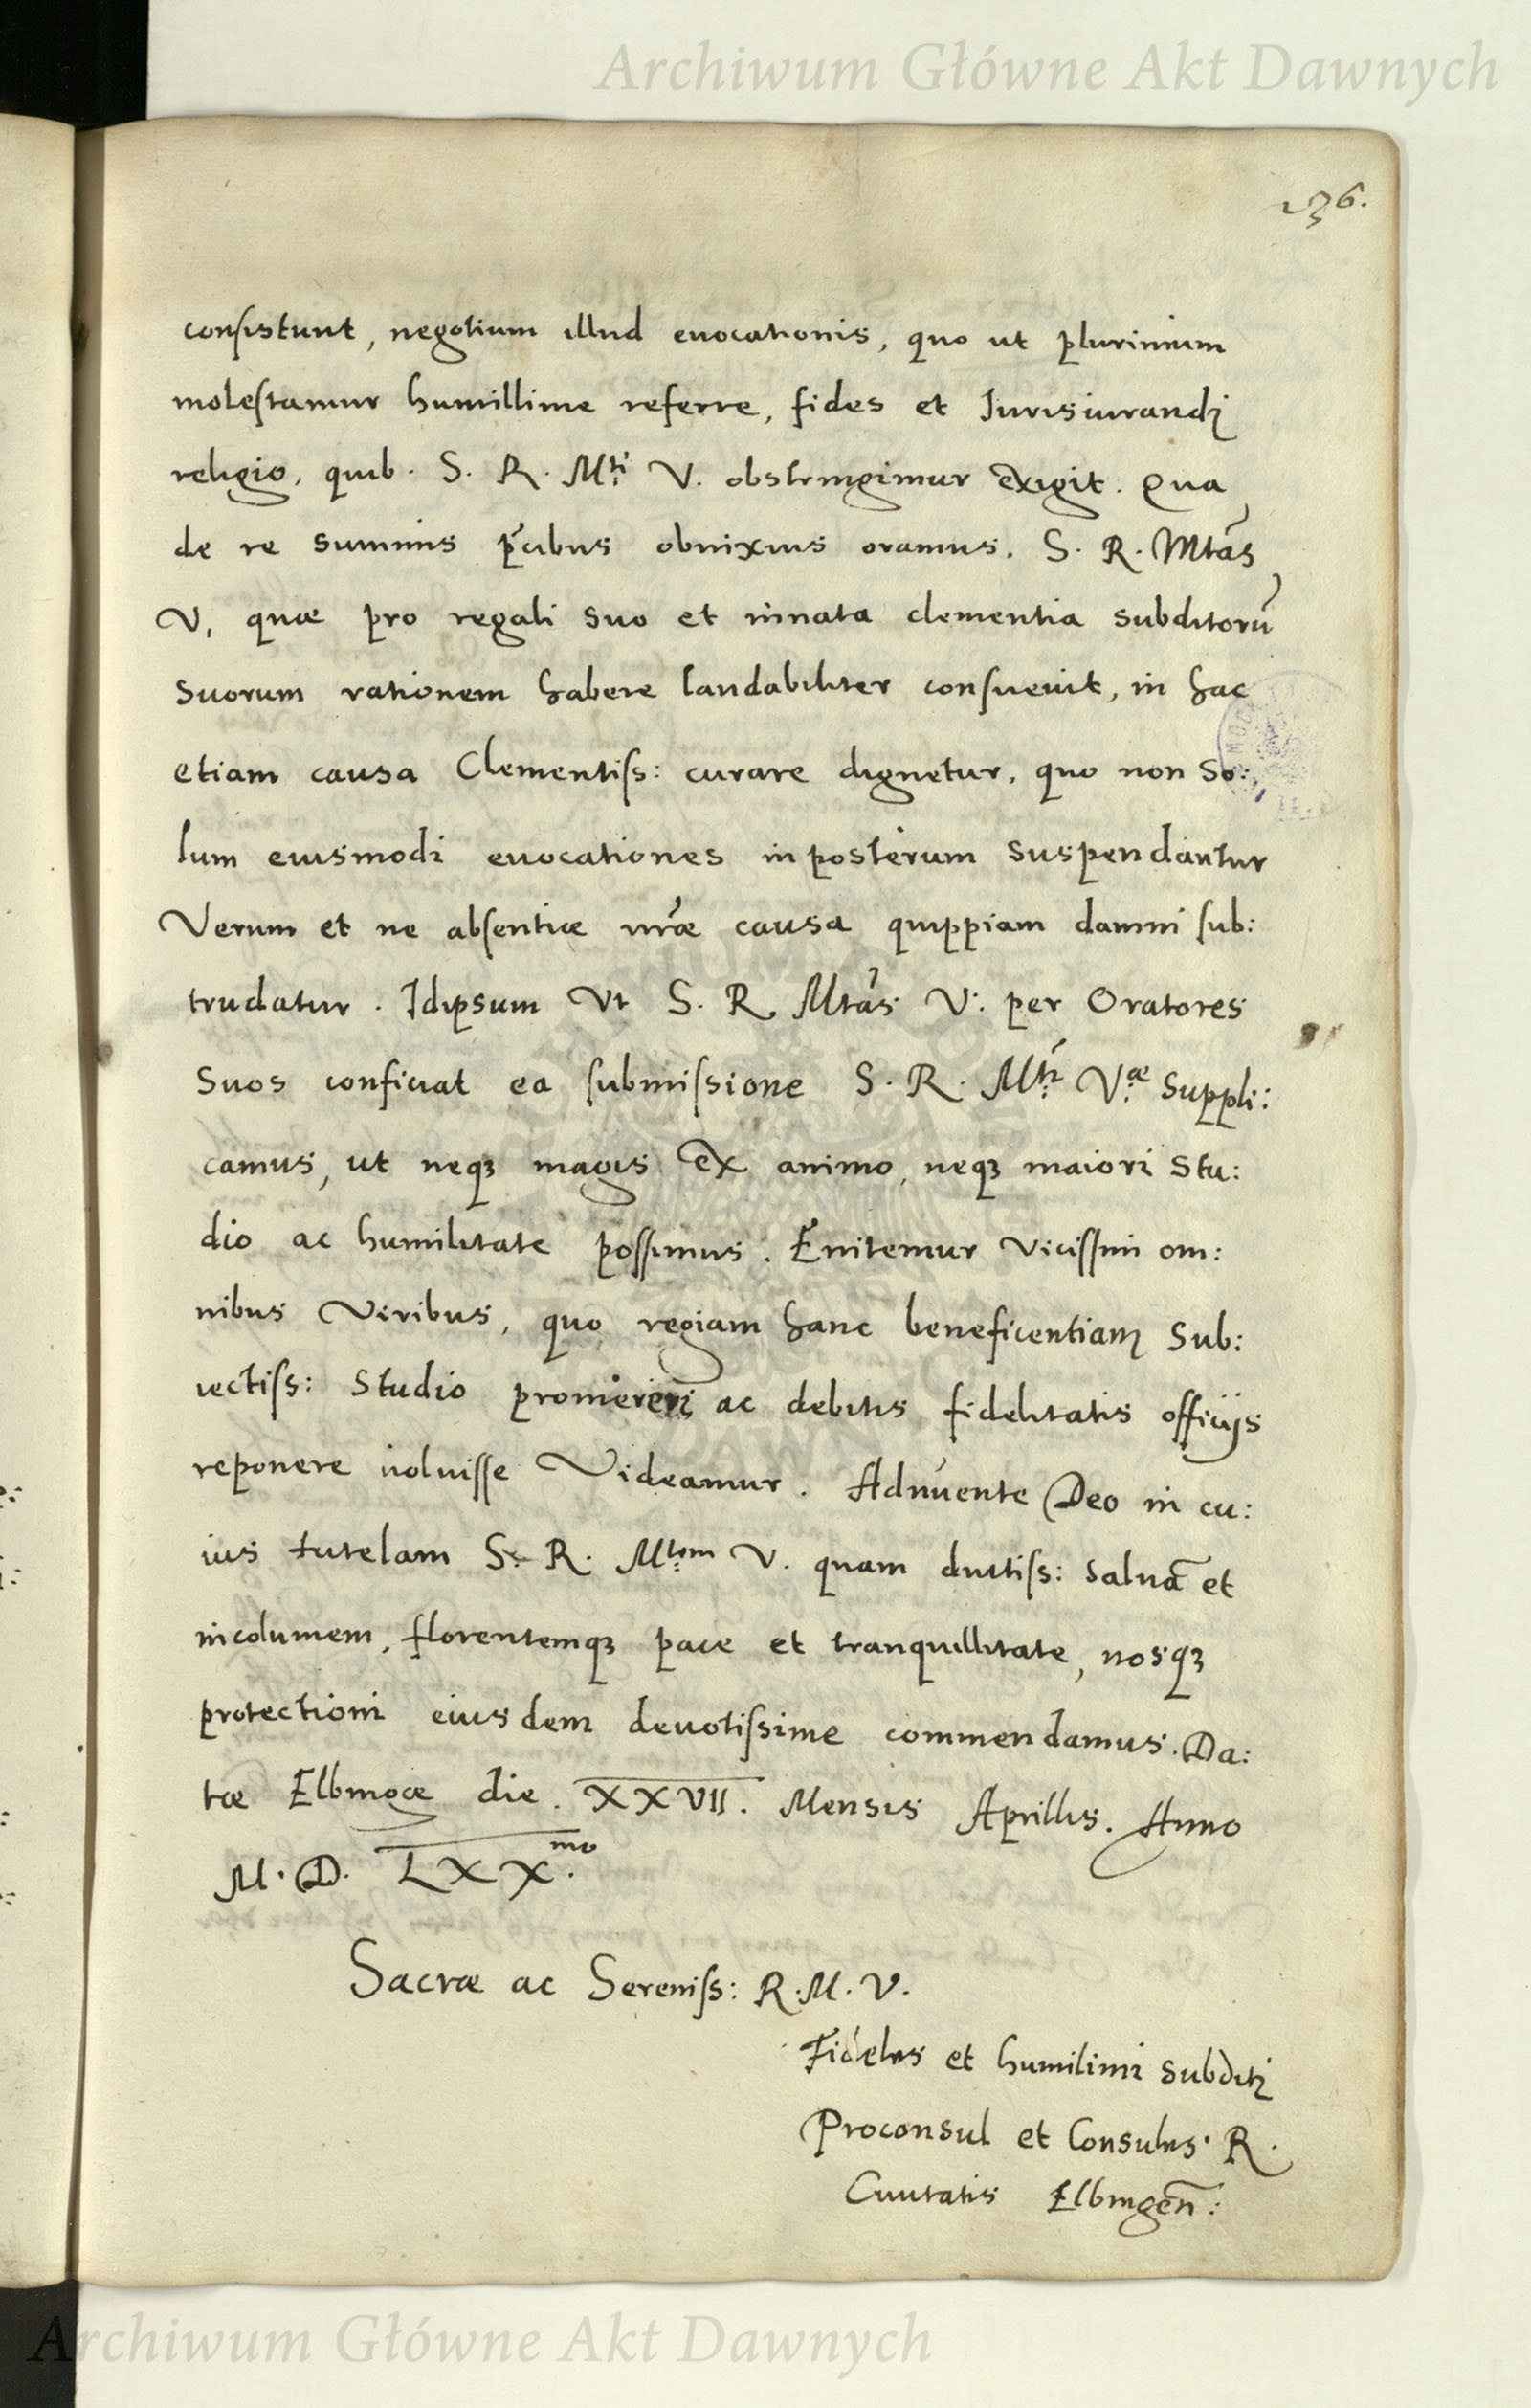 Archiwum Główne Akt Dawnych
236.
consistunt, negotium illud euocationis, quo ut plurimum
molestamur humillime referre, fides et Iurisiurandi
religio, quib. S. R. Mti V. obstringimur exigit. Qua
de re summis p̄cibus obnixius oramus. S. R. Mtās
V, quæ pro regali suo et innata clementia subditorū
suorum rationem habere laudabiliter consueuit, in hac
etiam causa Clementiss: curare dignetur, quo non so:
lum eiusmodi euocationes inposterum suspendantur
Verum et ne absentiæ nr̄æ causa quippiam damni sub:
trudatur. Idipsum Vt S. R Mtās V. per Oratores
suos conficiat ea submissione S. R. Mti Væ suppli:
camus, ut neqȝ magis ex animo, neqȝ maiori stu:
dio ac humilitate possimus. Enitemur vicissim om:
nibus Viribus, quo regiam hanc beneficentiam sub:
iectiss: studio promereri ac debitis fidelitatis officijs
reponere uoluisse Videamur. Adnuente Deo in cu:
ius tutelam S. R. Mtem V. quam diutiss: saluā et
incolumem, florentemqȝ pace et tranquillitate, nosqȝ
protectioni eiusdem deuotissime commendamus. Da:
tæ Elbingæ die. XXVII. Mensis Aprillis. Anno
M. D. LXX.mo
Sacræ ac Sereniss: R. M. V.
Fideles et humilimi subditi
Proconsul et Consules. R.
Ciuitatis Elbingen̄:
Archiwum Główne Akt Dawnych